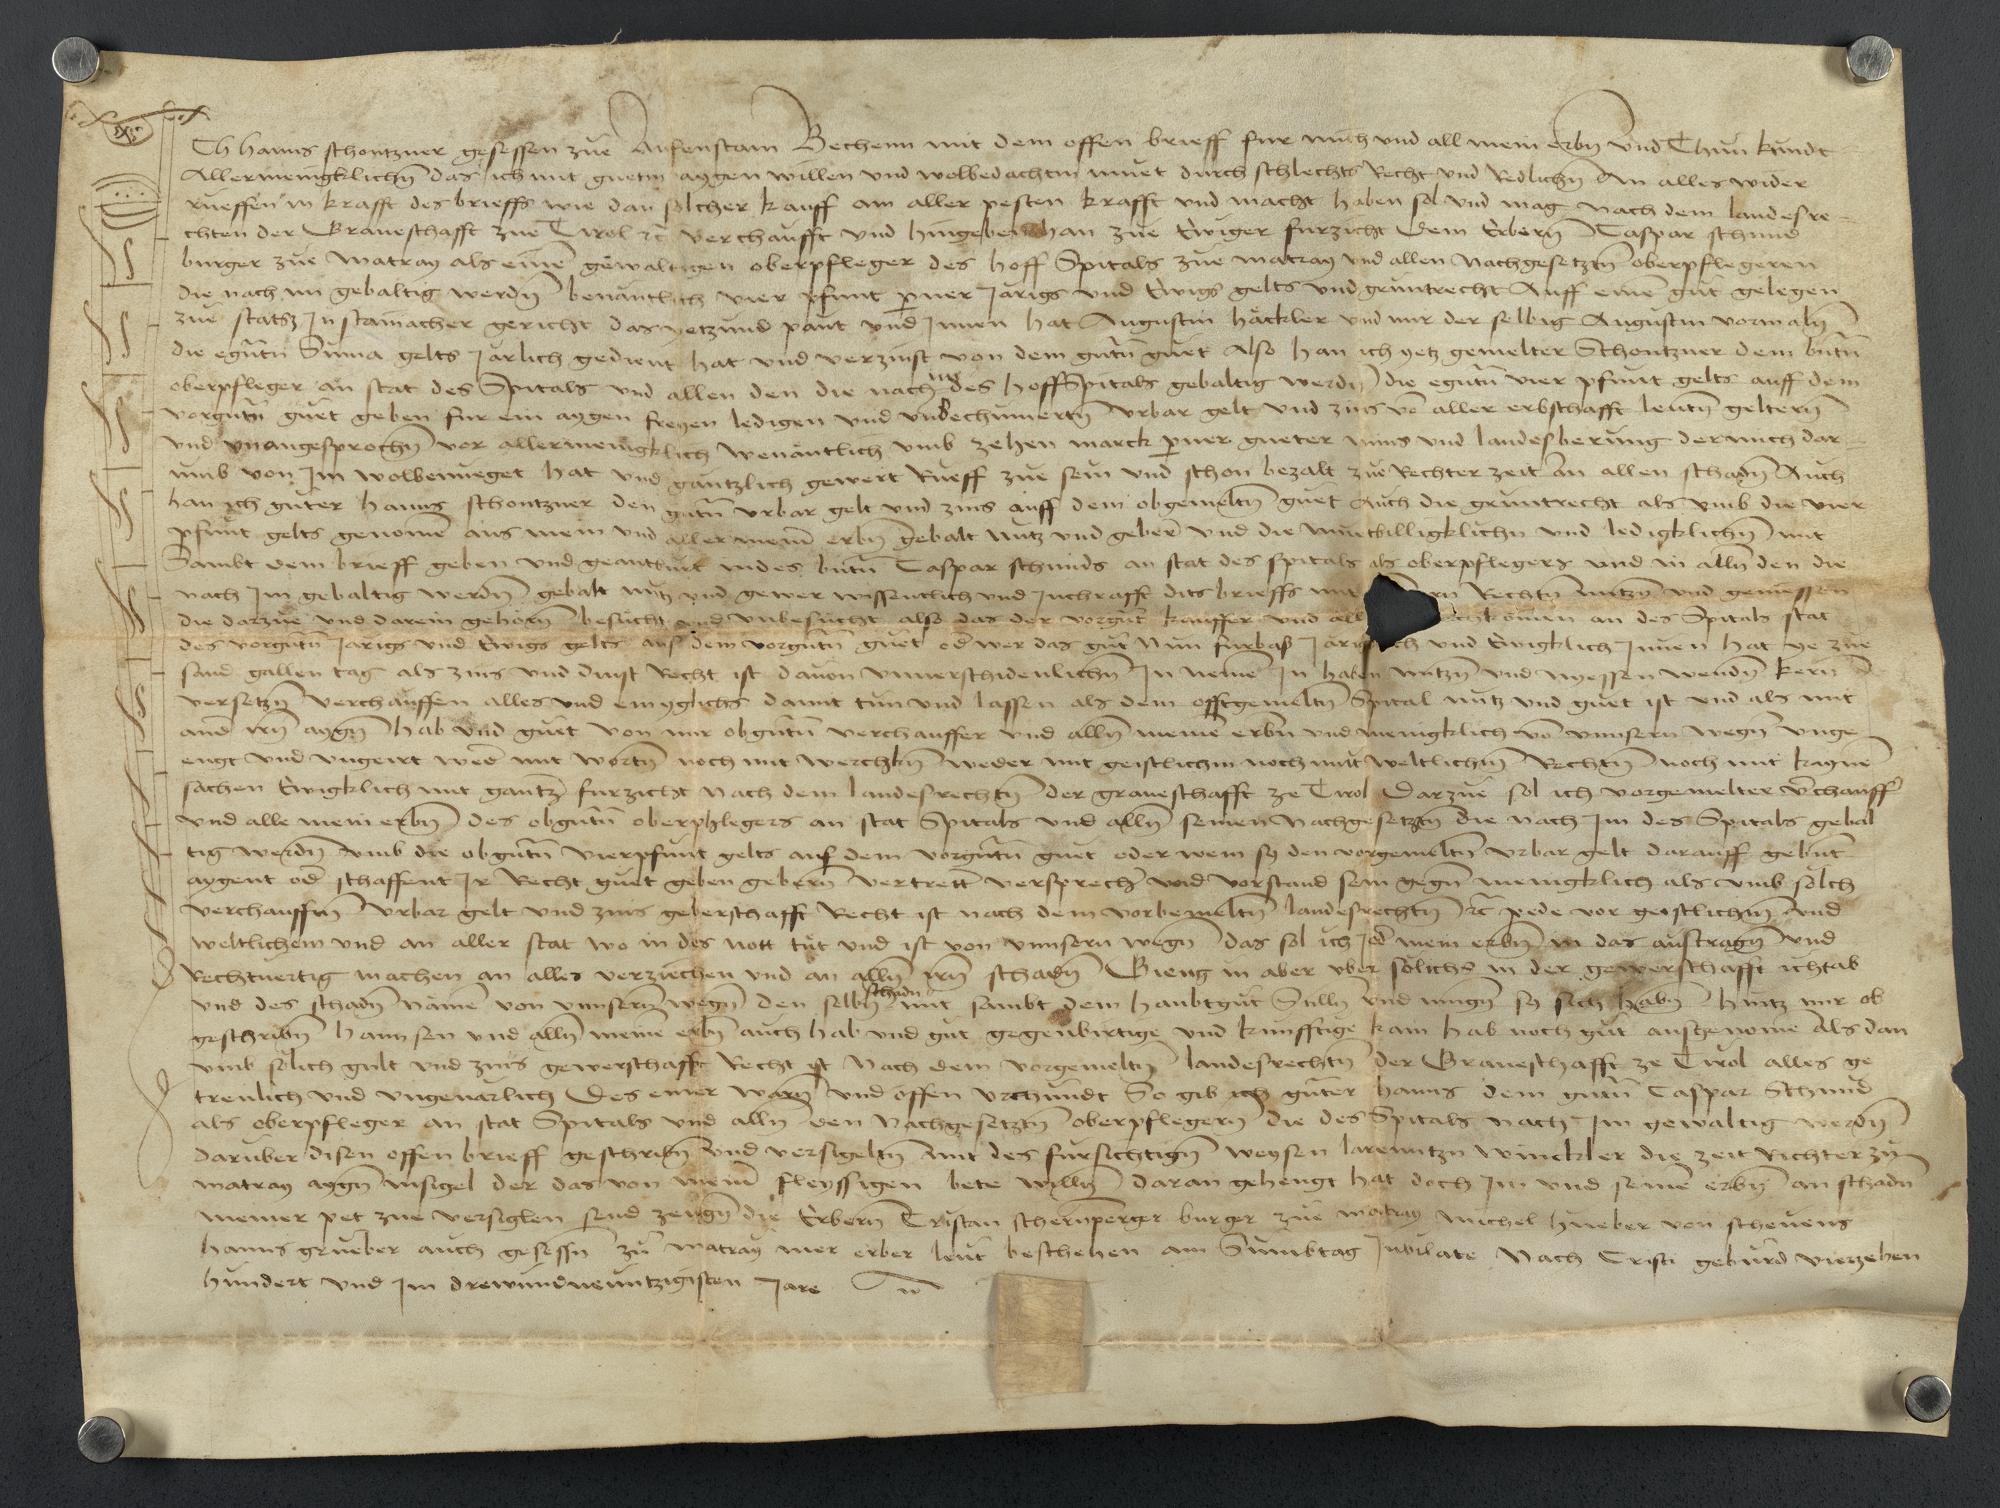 Ich Hanns schontzner gesessen zue Aufenstain Bechenn mit dem offen brieff fur mich und all mein erbn̄ vnd Thun kundt
Allermenigklichn̄ das ich mit guetm aygen willen vnd wolbedachtm muet durch schlechts Recht vnd Redlichn̄ An alles wider
rueffen in krafft des brieffs wie dan solcher kauff am aller pesten krafft vnd macht haben sol vnd mag nach dem landesre-
chten der Graueschafft zue Tirol rc̄ verchaufft vnd hingeben han zue Ewiger furzicht dem Erbern̄ Caspar schmid
burger zue Matray als einē gewaltigen oberpfleger des hoff Spitals zue matray vnd allen Nachgesetztn̄ oberpflegeren
die nach im gebaltig werdn̄ benäntlich vier pfunt p̄ner Järigs vnd Ewigs gelts vnd gruntrecht Auff einē gut gelegen
zue statz In stainacher gericht das yetzund paut vnd Innen hat Augustin häckler vnd mir der selbig Augustin vormaln̄
die egūtn̄ Suma gelts Järlich gedient hat vnd verzinst von dem gūtn̄ guet Also han ich yetz gemelter Schontzner dem būtn̄
oberpfleger an stat des Spitals vnd allen den die nach im des hoffSpitals gebaltig werdn̄ die egūtn̄ vier pfunt gelts auff dem
vorgūtn̄ guet geben fur ein aygen freyen ledigen vnd vnbechumertn̄ vrbar gelt vnd zins vō aller erbschafft leutn̄ geltern̄
vnd vnangesprochn̄ vor allermenigklich Wenäntlich vmb zehen marck p̄ner gueter mūs vnd landesberung der mich dar-
vmb von Im wolbenueget hat vnd gäntzlich gewert Rueff zue sein vnd schon bezalt zue Rechter zeit an allen schadn̄ Auch
han ich gūter hanns schontzner den gūtn̄ vrbar gelt vnd zins auff dem obgemeltn̄ guet Auch die gruntrecht als vmb die vier
pfunt gelts genomē aus mein vnd aller meinē erbn̄ gebalt Nutz vnd geberē vnd die mūtbilligklichn̄ vnd ledigklichn̄ mit
Sambt dem brieff geben vnd geantburt in des būtn̄ Caspar schmids an stat des spitals als oberpflegers vnd in alln̄ den die
nach Im gebaltig werdn̄ gebalt nutz vnd gewer wissentlich vnd In chrafft dits brieffs mit Rechtn̄ Nutzn̄ vnd geniessen
die darzue vnd darein gehörn̄ besücht vnd vnbesücht also das der vorgūt kauffer vnd an des Spitals stat
des vorgūtn̄ Järigs vnd Ewigs gelts auf dem vorgūtn̄ guet od̄ wer das gūt Nun furbas vnd Ewigklich Innen hat ye zue
sand gallen tag als zins vnd dinst Recht ist dauon vnuerschidenlichn̄ In nemē In haben nutzn̄ vnd nyessen wendn̄ kern̄
versetzn̄ verchauffen alles vnd einyglichs damit tun vnd lassen als dem offtgemeltn̄ Spital nutz vnd guet ist vnd als mit
and̄ irn̄ aygn̄ hab vnd guet von mir obgūtn̄ verchauffer vnd alln̄ meinē erbn̄ vnd menigklich vō vnnsern wegn̄ vnge-
engt vnd vngeirt wed̄ mit wortn̄ noch mit werchkn̄ weder mit geistlichm noch mit weltlichn̄ Rechtn̄ noch mit kaynē
sachen Ewigklich mit gantzē furzicht Nach dem landesrechtn̄ der graueschafft ze Tirol Darzue sol ich vorgemelter v̄chauff̄
vnd alle mein erbn̄ des obgūtn̄ oberphlegers an stat Spitals vnd alln̄ seinen Nachgesetztn̄ die nach Im des Spitals gebal
tig werdn̄ vmb die obgūtn̄ vierpfunt gelts auf dem vorgūtn̄ guet oder wem sy den vorgemeltn̄ vrbar gelt darauff gebnt
aygent od̄ schaffent Ir Recht guet geben gebern̄ vertrettē versprechē vnd vorstand sein gegn̄ menigklich als vmb solch
verchaufftn̄ vrbar gelt vnd zins geberschafft Recht ist nach dem vorbemeltn̄ landesrechtn̄ rc̄ pede vor geistlichem vnd
weltlichem vnd an aller stat wo in des nott tut vnd ist von vnnsern wegn̄ das sol ich od̄ mein erbn̄ in das austragn̄ vnd
Rechtuertig machen an alles verzuechen vnd an alln̄ irn̄ schadn̄ Gieng in aber vber sölichs in der gewerschafft ichtab
vnd des schadn̄ nämē von vnnsern̄ wegn̄ den selbn̄ schadn̄ mit sambt dem haubtgut Sulln̄ vnd mugn̄ sy sich habn̄ hintz mir ob
geschribn̄ hannsen vnd alln̄ meinē erbn̄ auch hab vnd gut gegenbirtige vnd kunfftige kain hab noch gut ausgenomē Als dan
vmb solich gult vnd zins gewerschafft Recht ist Nach dem vorgemeltn̄ landesrechtn̄ der Graueschafft ze Tirol alles ge
treulich vnd vngeuarlich Des einer warn̄ vnd offen vrchundt So gib ich gūter hanns dem gūtn̄ Caspar Schmid
als oberpfleger an stat Spitals vnd alln̄ den Nachgesetztn̄ oberpflegern̄ die des Spitals nach Im gewaltig werdn̄
daruber disen offen brieff geschribn̄ vnd versigeltn̄ mit des fursichtign̄ weysen larenntzn winckler die zeit Richter zu
matray aygn̄ insigel der das von meinē fleyssigen bete willn̄ daran gehengt hat doch Im vnd seinē erbn̄ an schadn
meiner pet zue versiglen send zeugn̄ die Erbern̄ Cristan schernperger burger zue matray Michel hueber von scheuens
hanns grueber auch gesessn̄ zu matray mer erber leut beschehen am Sambtag Jubilate Nach Cristi geburd vierzehen
hundert vnd Im drewundneuntzigisten Jare